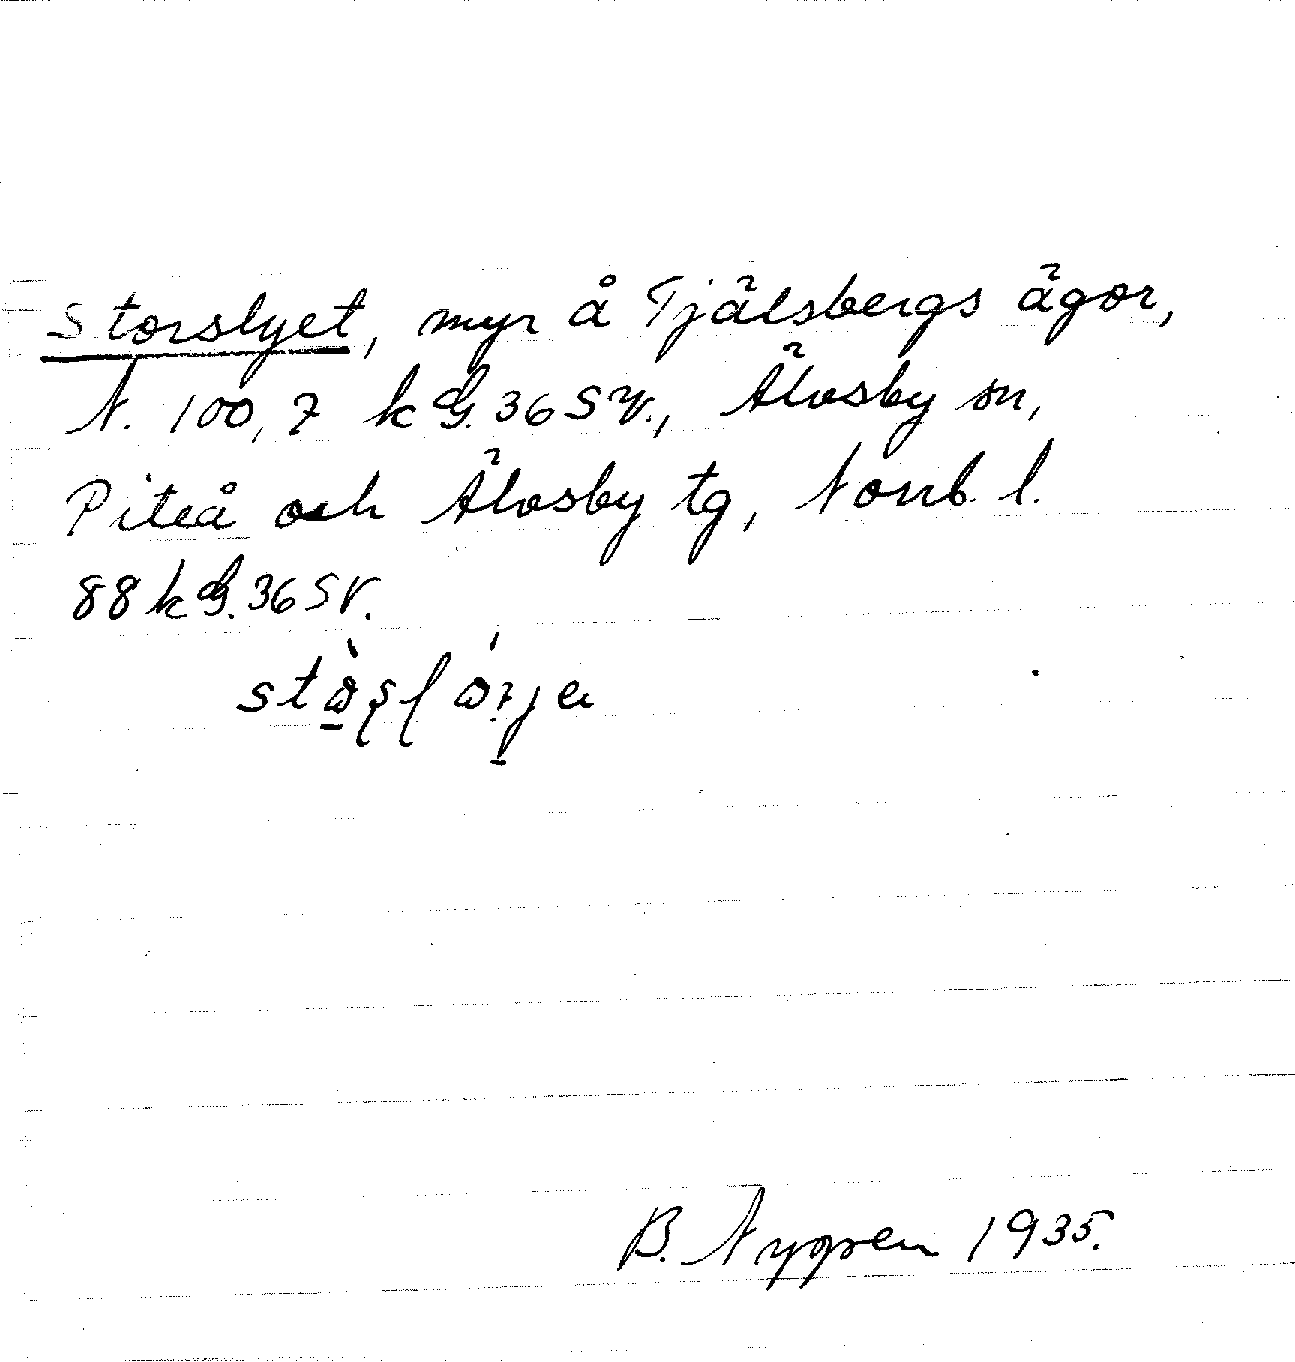 Storslyet, myr å Tjälsbergs ägor,
N. 100,7 kG.36SV., Älvsby sn,
Piteå och Älvsby tg, Norrb. l.
88kG.36SV.
B. Nygren 1935.